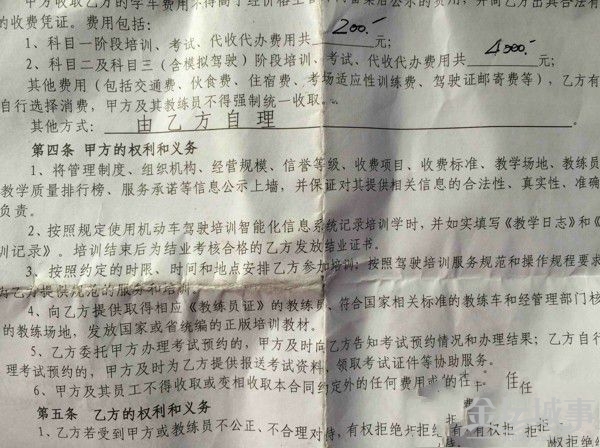 甲方收取乙方的学车费用不得高于经价格主管
的收费凭证。费用包括:
1、科目一阶段培训、考试、代收代办费用共 200.- 元;
2、科目二及科目三(含模拟驾驶)阶段培训、考试、代收代办费用共 4000.- 元;
其他费用(包括交通费、伙食费、住宿费、考场适应性训练费、驾驶证邮寄费等),乙方有
自行选择消费,甲方及其教练员不得强制统一收取。
其他方式: 由乙方自理 。
第四条 甲方的权利和义务
1、将管理制度、组织机构、经营规模、信誉等级、收费项目、收费标准、教学场地、教练员
教学质量排行榜、服务承诺等信息公示上墙,并保证对其提供相关信息的合法性、真实性、准确
负责。
2、按照规定使用机动车驾驶培训智能化信息系统记录培训学时,并如实填写《教学日志》和《
训记录》。培训结束后为结业考核合格的乙方发放结业证书。
3、按照约定的时限、时间和地点安排乙方参加培训;按照驾驶培训服务规范和操作规程要求
向乙方提供规范的服务和培训。
4、向乙方提供取得相应《教练员证》的教练员、符合国家相关标准的教练车和经管理部门核
的教练场地,发放国家或省统编的正版培训教材。
5、乙方委托甲方办理考试预约的,甲方及时向乙方告知考试预约情况和办理结果;乙方自行
理考试预约的,甲方及时为乙方提供报送考试资料,领取考试证件等协助服务。
6、甲方及其员工不得收取或变相收取本合同约定外的任何费用或
第五条 乙方的权利和义务
1、乙方若受到甲方或教练员不公正、不合理对待,有权拒绝